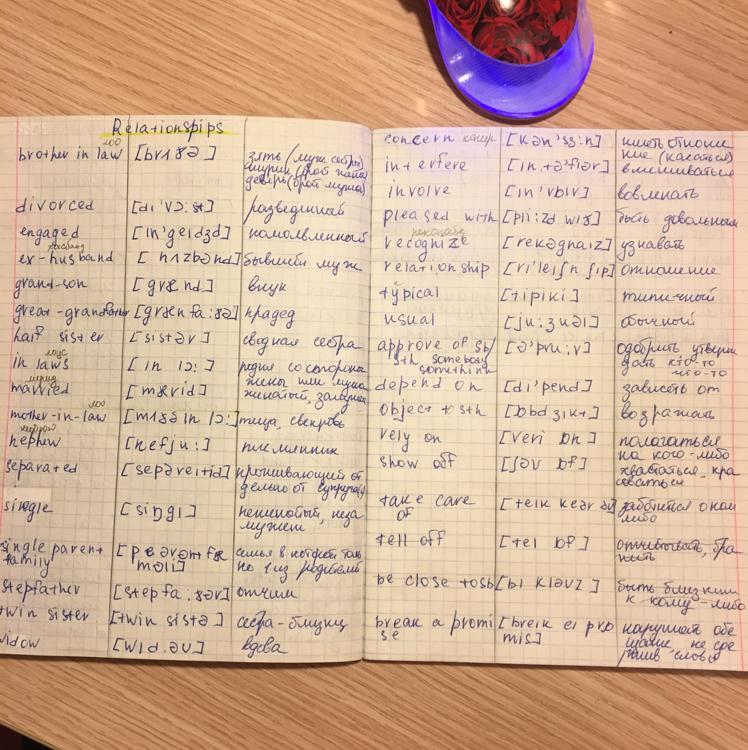 Relationspips
лоо
brother in law [brʌʒə] зять (муж сестры)
шурин (брат жены)
деверь (брат мужа)
divorced [dı'vɔ:st] разведённый
engaged [in'geıdʒd] помолвленный
хазбанд
ex-husband [hʌzbənd] бывший муж
grand-son [grænd] внук
great-grandfather [grænfa:ʒə] прадед
half sister [sistər] сводная сестра
лоус
in laws [in lɔ:] родня со стороны
жены или мужа
married [mærid] женатый,
лоо
mother-in-law [mʌʒə in lɔ:] тёща, свекровь
nephew [nefju:] племянник
separated [sepəreitid] проживающий от
дельно от супруга
single [siŋgl] неженатый, неза
мужем
single parent [peərəntfæ семья в которой толь
family məli] ко 1 из родителей
stepfather [stepfa:ʒər] отчим
twin sister [twin sistə] сестра-близнец
widow [wıd.əu] вдова
concern [kən'sɜ:n] иметь отноше
ние (касаться)
interfere [in.tə'fıər] вмешиваться
involve [in'vɒlv] вовлекать
pleased with [pli:zd wiʒ] быть довольным
recognize [rekəgnaız] узнавать
relationship [ri'leiʃnʃip] отношение
typical [tipikl] типичный
usual [ju:ʒuəl] обычный
approve of sb/ [ə'pru:v] одобрить утверж
sth somebody дать кто-то
somethink что-то
depend on [dı'pend] зависеть от
object to sth [ɒbdʒikt] возражать
rely on [reli ɒn] полагаться
на кого-либо
show off [ʃəu ɒf] хвастаться, кра
соваться
take care [teik keər əv] заботится о ком
of либо
tell off [tel ɒf] отчитывать, бра
нить
be close to sb [bi kləuz] быть близким
к кому-либо
break a promi [breik ei prɒ нарушать обе
se mis] щание, не сде
ржив слова